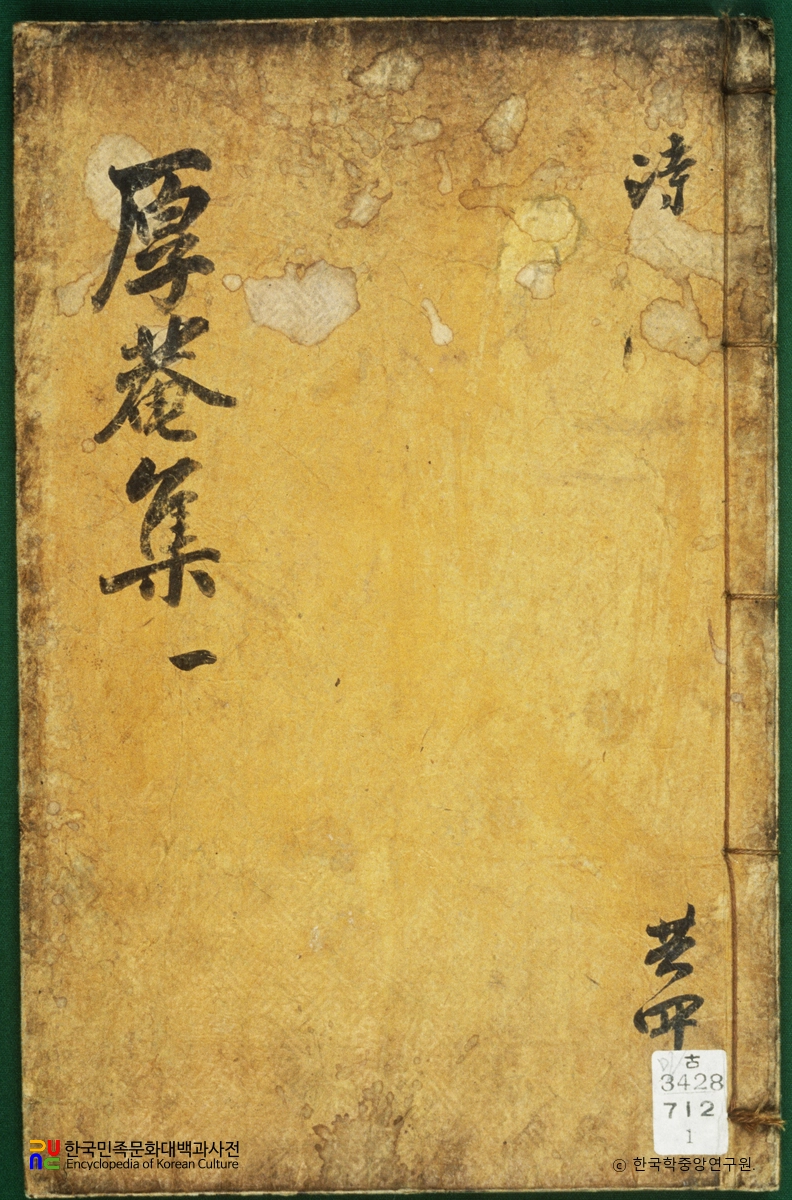 詩
共四
厚菴集 一
古
3428
712
1
한국민족문화대백과사전
Encyclopedia of Korean Culture
ⓒ 한국학중앙연구원.